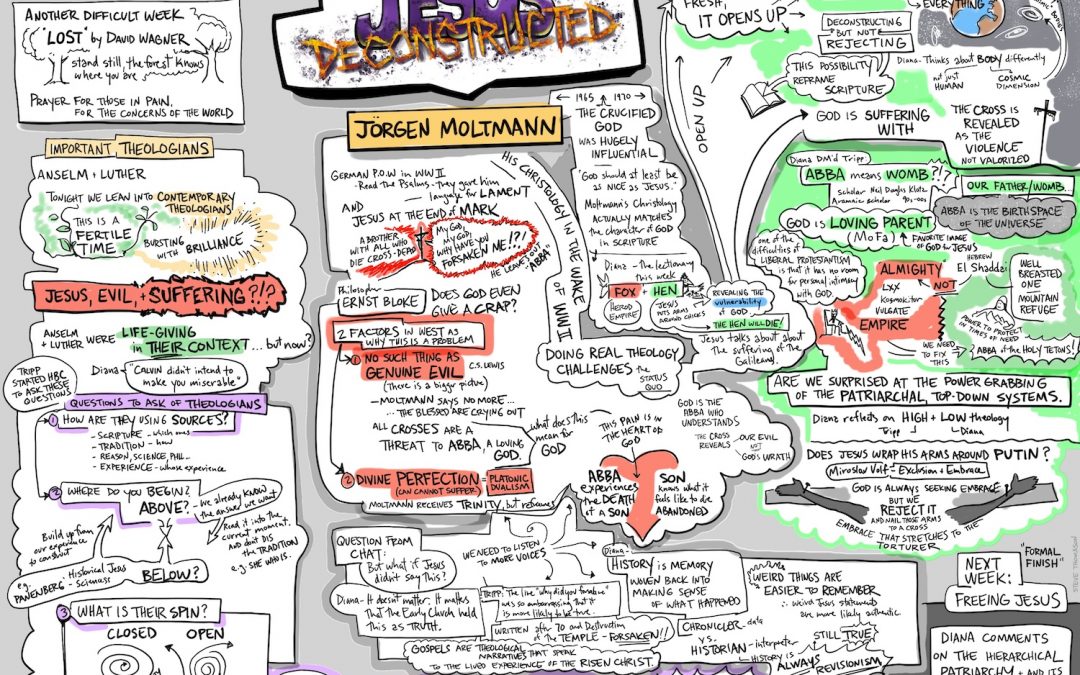 ANOTHER DIFFICULT WEEK?
"LOST" by DAVID WAGNER
stand still, the forest knows
where you are
PRAYER FOR THOSE IN PAIN,
FOR THE CONCERNS OF THE WORLD
IMPORTANT THEOLOGIANS
ANSELM + LUTHER
TONIGHT WE LEAN INTO CONTEMPORARY
THEOLOGIANS
THIS IS A
FERTILE
TIME
BURSTING
WITH BRILLIANCE
JESUS, EVIL, + SUFFERING?!?
ANSELM
+ LUTHER WERE LIFE-GIVING
IN THEIR CONTEXT... but now?
TRIPP
STARTED HBC
TO ASK THESE
QUESTIONS
Diana "CALVIN didn't intend to
make you miserable"
QUESTIONS TO ASK OF THEOLOGIANS
1 HOW ARE THEY USING SOURCES?
- SCRIPTURE - which ones
- TRADITION - how
- REASON, SCIENCE, PHIL...
- EXPERIENCE - whose experience
2 WHERE DO YOU BEGIN?
ABOVE? - We already KNOW
the answer we want
Read it into the
current moment.
and don't DIS
the TRADITION
e.g. SHE WHO IS.
Build up from
our experience
to construct
BELOW?
e.g. PANENBERG: Historical Jesus
Sciences
3 WHAT IS THEIR SPIN?
CLOSED OPEN
JESUS
DECONSTRUCTED
JÖRGEN MOLTMANN
GERMAN P.O.W in WW II
- Read the Psalms - they gave him
language for LAMENT
AND
JESUS AT THE END of MARK
A BROTHER
WITH ALL WHO
DIE CROSS-DEAD
MY GOD,
MY GOD!
WHY HAVE YOU
FORSAKEN ME!?!
HE LEAVES OUT
"ABBA"
HIS CHRISTOLOGY IN THE WAKE of WWII
Philosopher
ERNST BLOKE DOES GOD EVEN
GIVE A CRAP?
2 FACTORS IN WEST AS
WHY THIS IS A PROBLEM
1 NO SUCH THING AS
GENUINE EVIL C.S. LEWIS
(There is a bigger picture)
- MOLTMANN SAYS NO MORE...
... THE BLESSED ARE CRYING OUT
ALL CROSSES ARE A
THREAT TO ABBA, A LOVING
GOD.
what does this
mean for
GOD
2 DIVINE PERFECTION = PLATONIC
DUALISM
(CAN CANNOT SUFFER)
MOLTMANN RECEIVES TRINITY, but reframes
DOING REAL THEOLOGY
CHALLENGES the
STATUS
QUO
THIS PAIN IS IN
THE HEART OF
GOD
ABBA
experiences
the DEATH
of A SON
SON
knows what it
feels like to die
ABANDONED
GOD IS THE
ABBA WHO
UNDERSTANDS
THE CROSS
REVEALS
OUR EVIL
NOT
GOD'S WRATH
1965 1970
THE CRUCIFIED
GOD
WAS HUGELY
INFLUENTIAL.
"GOD should at least be
as NICE as JESUS."
Moltmann's Christology
ACTUALLY MATCHES
the character of GOD
in SCRIPTURE
Diana - The lectionary
this week
FOX + HEN
HEROD
EMPIRE
JESUS
PUTS ARMS
AROUND CHICKS
REVEALING THE
vulnerability
of GOD
THE HEN WILL DIE!
Jesus talks about about
THE SUFFERING of THE
Galileans
OPEN UP
FRESH,
IT OPENS UP
EVERYTHING
DECONSTRUCTING
BUT NOT
REJECTING
THIS POSSIBILITY
REFRAME
SCRIPTURE
Diana - Thinks about BODY differently
not just
HUMAN
COSMIC
DIMENSION
GOD IS SUFFERING
WITH
THE CROSS IS
REVEALED
AS THE
VIOLENCE
NOT VALORIZED
Diana DM'd Tripp
ABBA MEANS WOMB?!?
Scholar Neil Douglas Klotz
Aramaic scholar
OUR FATHER/WOMB.
ABBA IS THE BIRTHSPACE
OF THE UNIVERSE
GOD IS LOVING PARENT
(MoFa)
FAVORITE IMAGE
OF GOD for JESUS
one of the
difficulties of
LIBERAL PROTESTANTISM
is that it has no room
for personal intimacy
with GOD.
ALMIGHTY
LXX
Kosmokitor
VULGATE
EMPIRE
NOT
HEBREW
El Shaddai
WELL
BREASTED
ONE
MOUNTAIN
REFUGE
POWER TO PROTECT
IN TIMES OF NEED
WE NEED
TO FIX
THIS
ABBA of the HOLY TETONS!
ARE WE SURPRISED AT THE POWER GRABBING
OF THE PATRIARCHAL, TOP-DOWN SYSTEMS.
Diana reflects on HIGH + LOW theology
Tripp Diana
DOES JESUS WRAP HIS ARMS AROUND PUTIN?
Miroslav Volf - Exclusion + Embrace
GOD IS ALWAYS SEEKING EMBRACE
BUT WE
REJECT IT
AND NAIL THOSE ARMS
TO A CROSS
EMBRACE THAT STRETCHES TO THE
TORTURER
QUESTION FROM
CHAT:
But what if JESUS
didn't say this?
Diana - It doesn't matter. It matters
that the Early Church held
this as TRUTH.
WE NEED TO LISTEN
TO MORE VOICES
TRIPP: The line "why did you forsake"
was so embarrassing that it
is more likely to be true.
WRITTEN after 70 and Destruction
of the TEMPLE - FORSAKEN!!
GOSPELS ARE THEOLOGICAL
NARRATIVES THAT SPEAK
TO THE LIVED EXPERIENCE OF THE RISEN CHRIST.
Diana -
HISTORY IS MEMORY
WOVEN BACK INTO
MAKING SENSE
OF WHAT HAPPENED
WEIRD THINGS ARE
EASIER TO REMEMBER
∴ weird Jesus statements
are more likely authentic.
CHRONICLER - data
vs.
HISTORIAN - interpreter
STILL TRUE
HISTORY IS
ALWAYS
REVISIONISM
NEXT
WEEK:
"FORMAL
FINISH"
FREEING JESUS
DIANA COMMENTS
ON THE HIERARCHICAL
PATRIARCHY + AND ITS
STEVE THOMASON